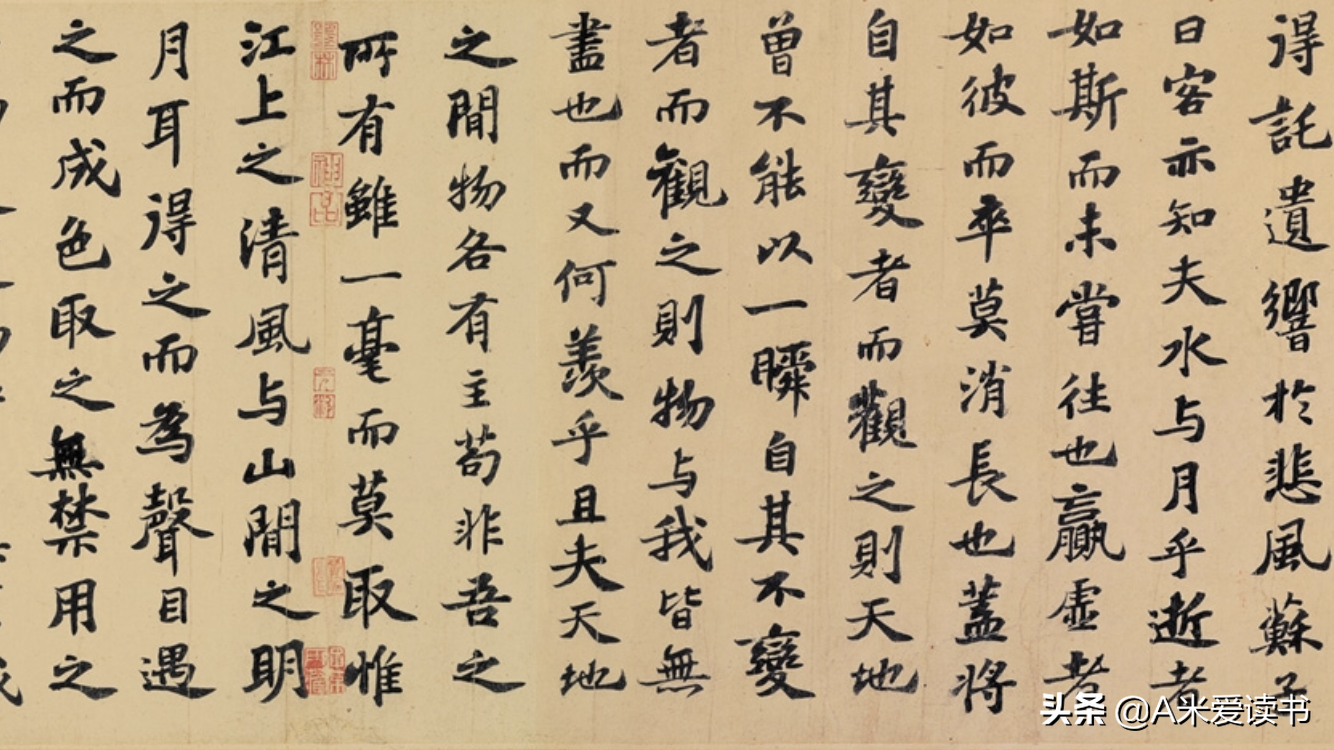 得託遺響於悲風蘇子
曰客亦知夫水与月乎逝者
如斯而未嘗往也贏虛者
如彼而卒莫消長也蓋將
自其變者而觀之則天地
曾不能以一瞬自其不變
者而觀之則物与我皆無
盡也而又何羨乎且夫天地
之間物各有主苟非吾之
所有雖一毫而莫取惟
江上之清風与山間之明
月耳得之而為聲目遇
之而成色取之無禁用之
头条 @A米爱读书